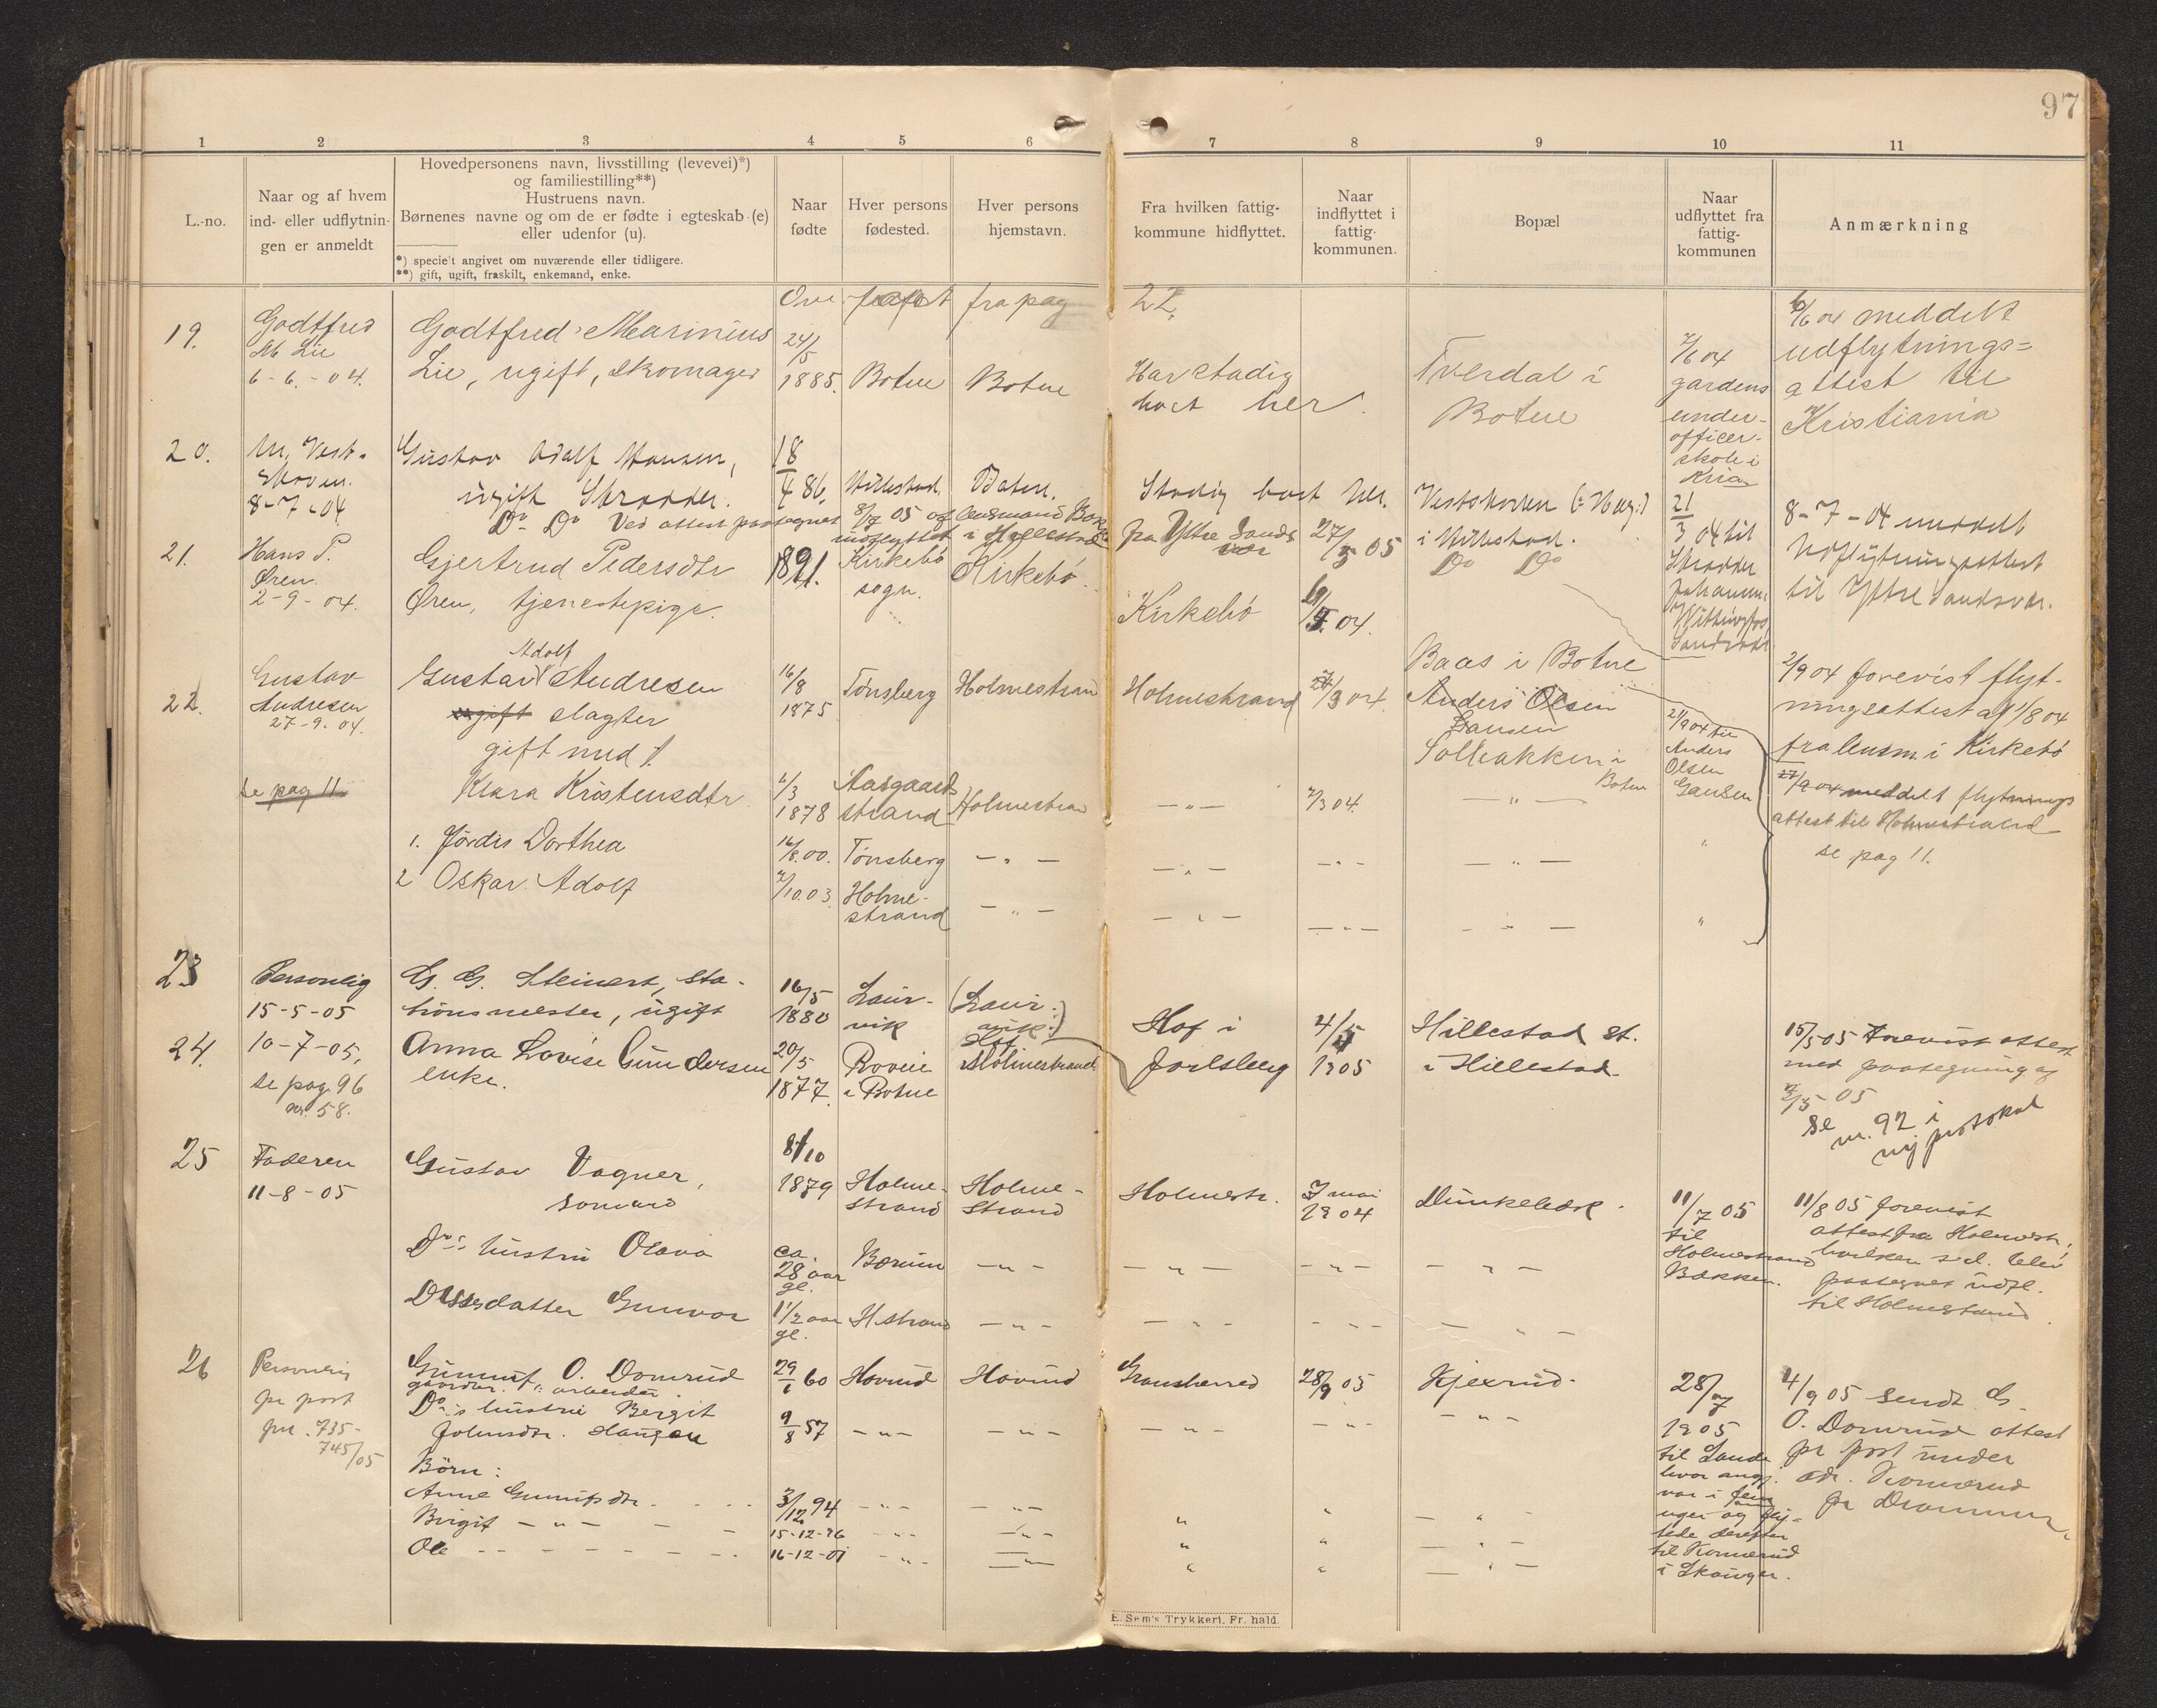 97
1 2 3 4 5 6 7 8 9 10 11
L.-no.
Naar og af hvem
ind- eller udflytnin-
gen er anmeldt
Hovedpersonens navn, livsstilling (levevei)*)
og familiestilling**)
Hustruens navn.
Børnenes navne og om de er fødte i egteskab (e)
eller udenfor (u).
*) specielt angivet om nuværende eller tidligere.
**) gift, ugift, fraskilt, enkemand, enke.
Naar
fødte
Hver persons
fødested.
Hver persons
hjemstavn.
Fra hvilken fattig-
kommune hidflyttet.
Naar
indflyttet i
fattig-
kommunen.
Bopæl
Naar
udflyttet fra
fattig-
kommunen
Anmærkning
fra pag 22.
19.
Godtfred
M Lie
6-6.-04.
Godtfred Marinius
Lie, ugift, skomager
24/5
1885.
Botne
Botne
Har stadig
boet her.
Tverdal i
Botne
7/6 04
gardens
under-
officer-
skole i
Kria
6/6 04 meddelt
udflytnings=
attest til
Kristiania
20.
Vest-
skoven.
8-7-04
Gustav Adolf Hansen,
ugift Skrædder.
Do Do Ved attest paategnet 8/7 05 af lensmand
indflyttet i Hillestad
18
4 86.
Hillestad
Botne.
Stadig boet her.
fra Ytre Sands
vær
27/5 05
Vestskoven (: Haug:)
i Hillestad.
Do Do
21
3 04 til
Skrædder
Johannes
Sandsvær
8-7-04 meddelt
Udflytningsattest
til Ytre Sandsvær.
21.
Hans P.
Øren.
2-9-04.
Gjertrud Pedersdtr
Øren, tjenestepige.
1891.
Kirkebø
sogn.
Kirkebø
Kirkebø
04.
Baas i Botne
2/9 04 forevist flyt-
ningsattest af 1/8 04
fra lensm. i Kirkebø
22.
Gustav
Andresen
27-9-04.
se pag 11.
Adolf
Gustav Andresen
ugift slagter
gift med
Klara Kristensdtr
1. Hjørdis Dorthea
2 Oskar Adolf
16/8
1875
2/3
1878
16/8.00.
7/10.03.
Tønsberg
Aasgaard-
strand
Tønsberg
Holme-
strand
Holmestrand
Holmestrand
— " —
— " —
Holmestrand
— " —
— " —
— " —
/3 04.
7/3 04.
— " —
— " —
Anders Olsen
Gausen
Solbakken i
Botne
— " —
— " —
— " —
21/9 04 til
Anders
Olsen
Gausen
"
"
27/9 04 meddelt flytnings
attest til Holmestrand
se pag 11.
23
Personlig
15-5-05
G. G. Steinert, sta-
tionsmester, ugift
16/5
1880
Laur-
vik
(Laur-
vik:)
Hof
Hof i
Jarlsberg
4/5
1905
Hillestad st.
i Hillestad.
15/5 05 Forevist attest
med paategning af
2/5 05
24.
10-7-05,
se pag. 96
nr. 58.
Anna Lovise Gundersen
enke.
20/5
1877.
Roveie
i Botne
Holmestrand
se
nr. 92 i
ny protokol
25
Faderen
11-8-05
Gustav Vagner,
sømand
Do's hustru Olava
Disses datter Gunvor
8/10
1879
ca.
28 aar
gl.
1 1/2 aar
gl.
Holme-
strand
Bærum
H.strand
Holme-
strand
— " —
— " —
Holmestr.
— " —
— " —
7 mai
1904
— " —
— " —
Dunkebæk.
— " —
— " —
11/7 05
til
Holmestrand
Bakken.
11/8 05 forevist
attest fra Holmestr.,
hvilken s.d. blev
paategnet udfl.
til Holmestrand.
26
Personlig
pr post
jnr. 735-
745/05
Gunnuf O. Domrud
gaardbr. arbeider.
Do's hustru Bergit
Johnsdtr. Haugen
Børn:
Anne Gunnufsdtr. . . .
Birgit — " — — —
Ole - - - - - -
29
60
9
8 57
3/12 94
15-12-96
16-12-01
Hovind
— " —
— " —
— " —
— " —
Hovind
— " —
— " —
— " —
— " —
Gransherred
— " —
"
"
"
28/9 03
— " —
"
"
"
Kjexrud.
— " —
— " —
— " —
— " —
28/7
1905
til Sande
hvor angj.
var i fem
uger og flyt-
tede derefter
til Konnerud
i Skouger.
4/9 05 sendt G.
O. Domrud attest
pr post under
adr. Konnerud
pr Drammen.
E. Sem's Trykkeri, Fr.hald.